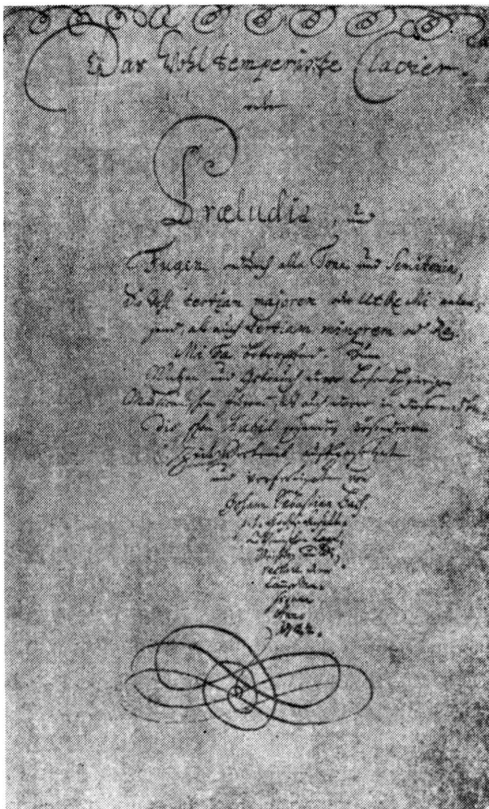 Das Wohltemperirte Clavier.
oder
Præludia, und
Fugen durch alle Tone und Semitonia,
So wohl tertiam majorem oder Ut Re Mi anlan-
gend, als auch tertiam minorem oder Re
Mi Fa betreffend. Zum
Nutzen und Gebrauch der Lehrbegierigen
Musicalischen Jugend, als auch derer in diesem stu-
dio schon habil seyenden besonderem
Zeit Vertreib auffgesetzet
und verfertiget von
Johann Sebastian Bach.
p. t.
Capel-
Meistern und Di-
rectore derer
Camer Mu-
siquen.
Anno
1722.